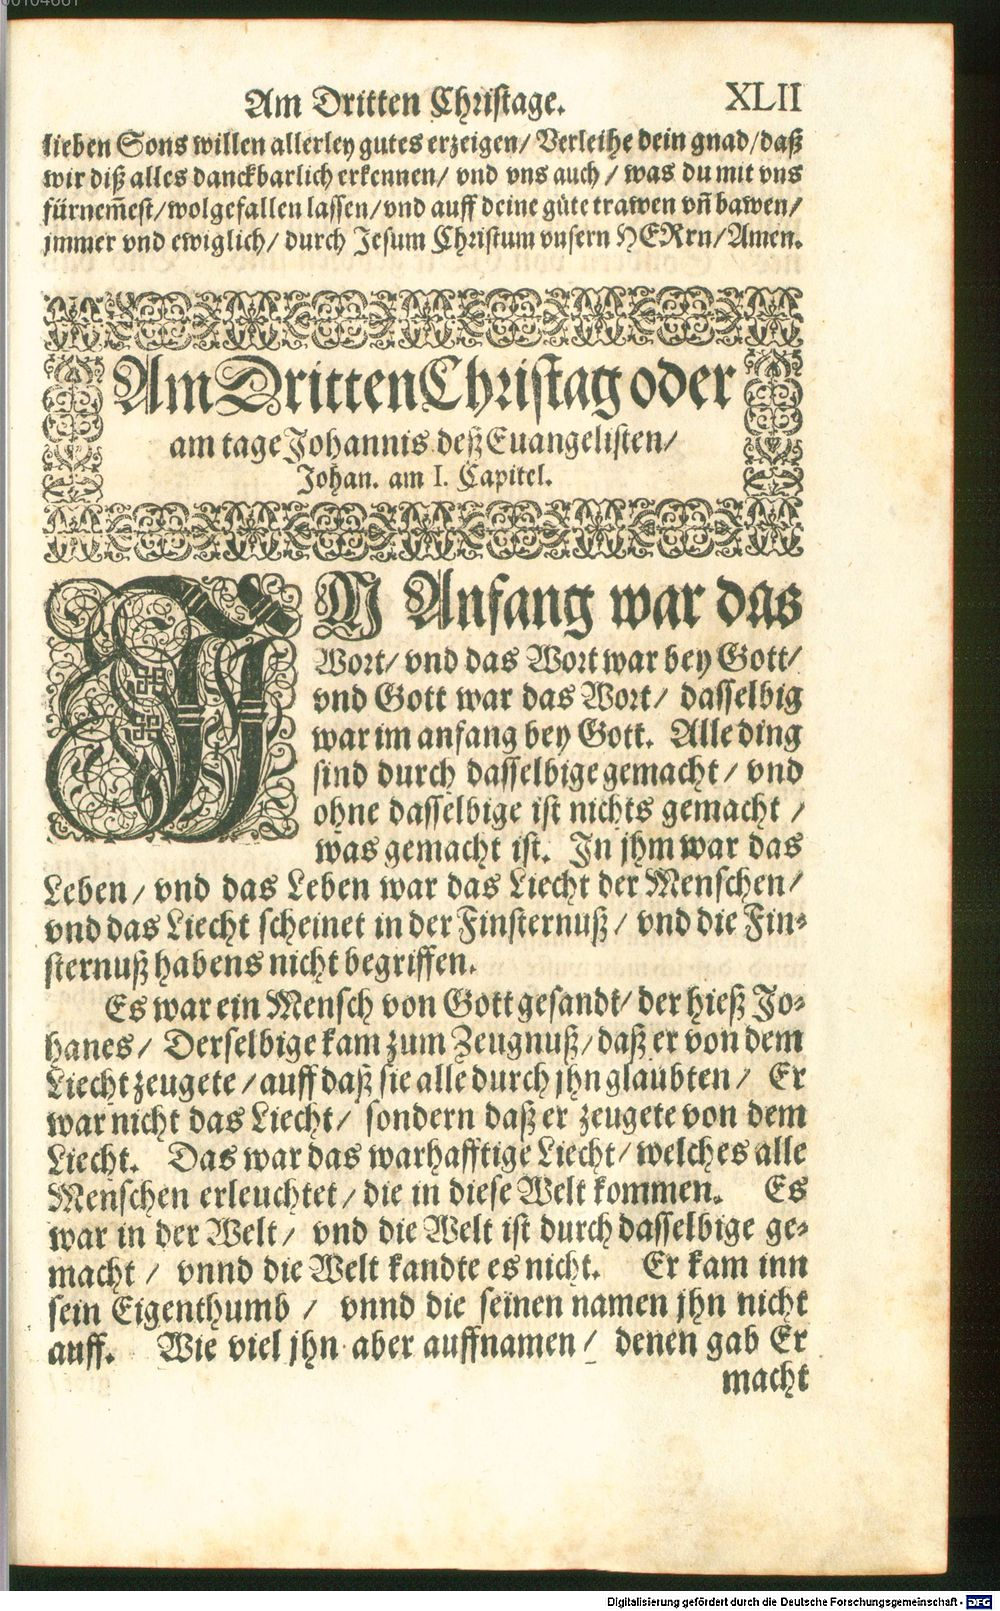 Am Dritten Christage. XLII
lieben Sons willen allerley gutes erzeigen/ Verleihe dein gnad/daß
wir diß alles danckbarlich erkennen/ vnd vns auch / was du mit vns
fürnem̃est/wolgefallen lassen/vnd auff deine güte trawen vñ bawen/
jmmer vnd ewiglich/ durch Jesum Christum vnsern HERrn/Amen.
Am Dritten Christag oder
am tage Johannis deß Euangelisten/
Johan. am I. Capitel.
IM Anfang war das
Wort/ vnd das Wort war bey Gott/
vnd Gott war das Wort/ dasselbig
war im anfang bey Gott. Alle ding
sind durch dasselbige gemacht / vnd
ohne dasselbige ist nichts gemacht /
was gemacht ist. In jhm war das
Leben/ vnd das Leben war das Liecht der Menschen/
vnd das Liecht scheinet in der Finsternuß/ vnd die Fin-
sternuß habens nicht begriffen.
Es war ein Mensch von Gott gesandt/ der hieß Jo-
hanes/ Derselbige kam zum Zeugnuß/daß er von dem
Liecht zeugete /auff daß sie alle durch jhn glaubten/ Er
war nicht das Liecht/ sondern daß er zeugete von dem
Liecht. Das war das warhafftige Liecht/welches alle
Menschen erleuchtet/die in diese Welt kommen. Es
war in der Welt/ vnd die Welt ist durch dasselbige ge-
macht / vnnd die Welt kandte es nicht. Er kam inn
sein Eigenthumb / vnnd die seinen namen jhn nicht
auff. Wie viel jhn aber auffnamen/ denen gab Er
macht
Digitalisierung gefördert durch die Deutsche Forschungsgemeinschaft - DFG